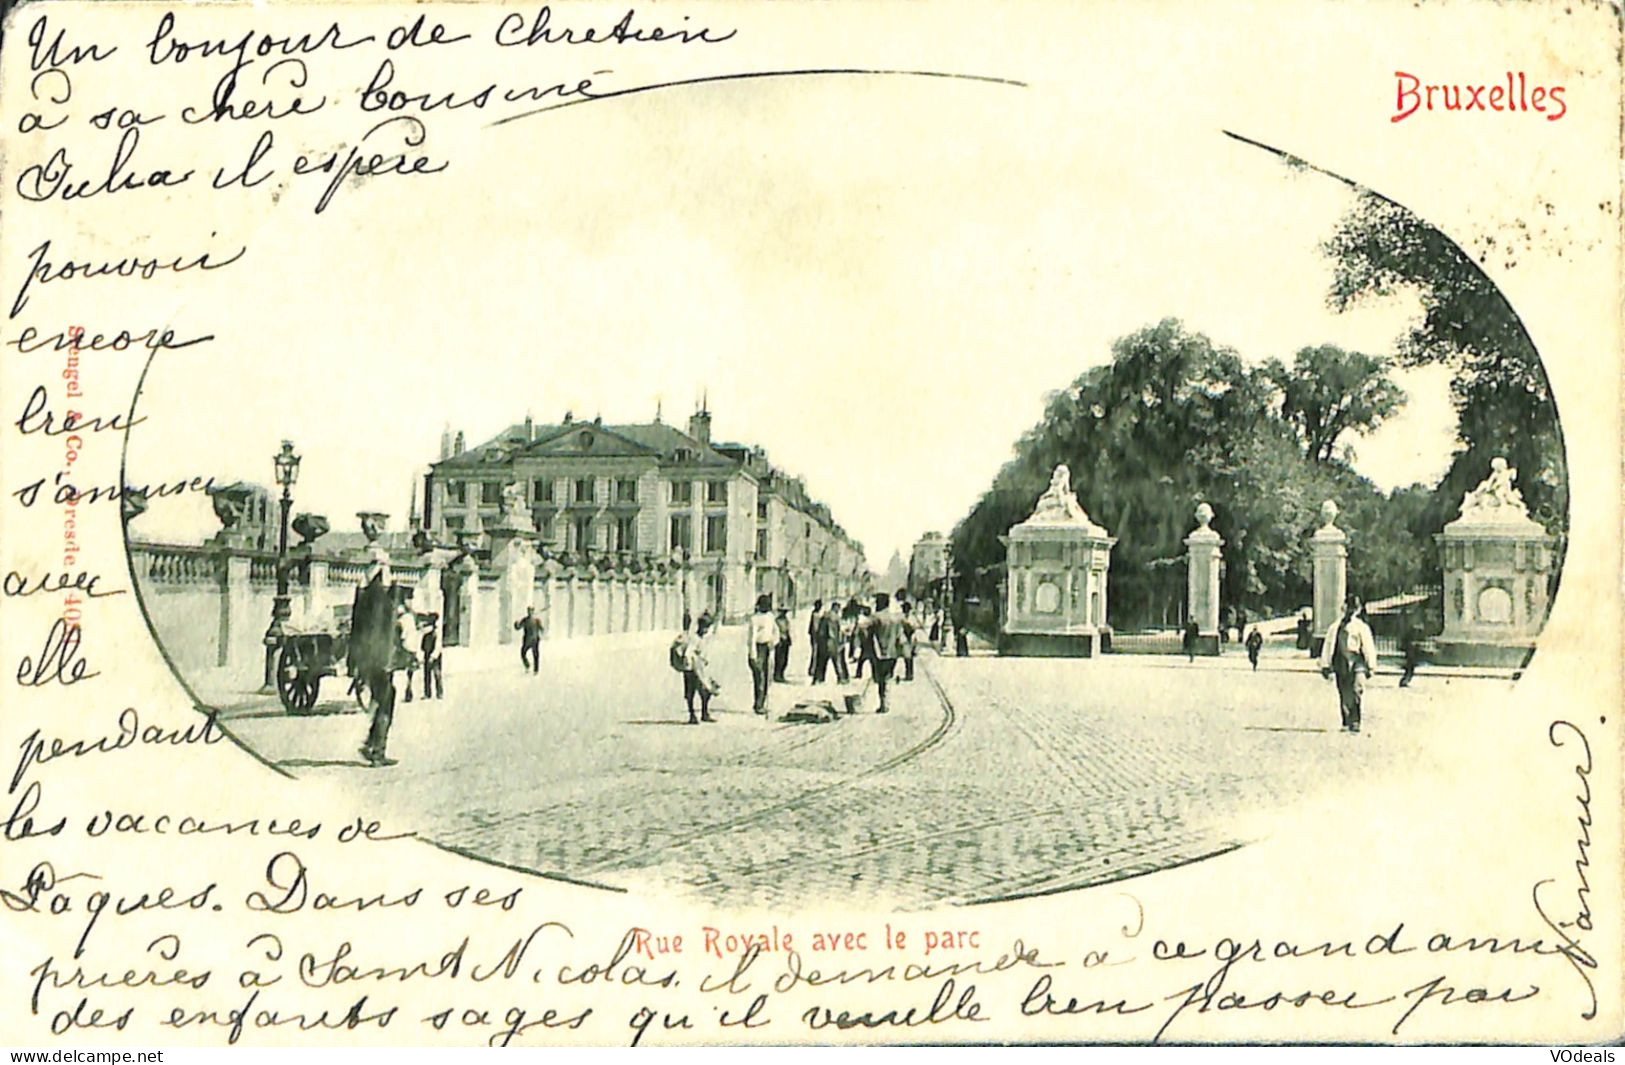 Un bonjour de Chretien
à sa chère Cousine
Julia il espère
pouvoir
encore
bien
s'amuser
avec
elle
pendant
les vacances de
Pâques. Dans ses
prières à Saint Nicolas. il demande à ce grand ami
des enfants sages qu'il veuille bien passer par
Namur.
Bruxelles
Stengel & Co., Dresde 40
Rue Royale avec le parc
delcampe.net
VOdeals